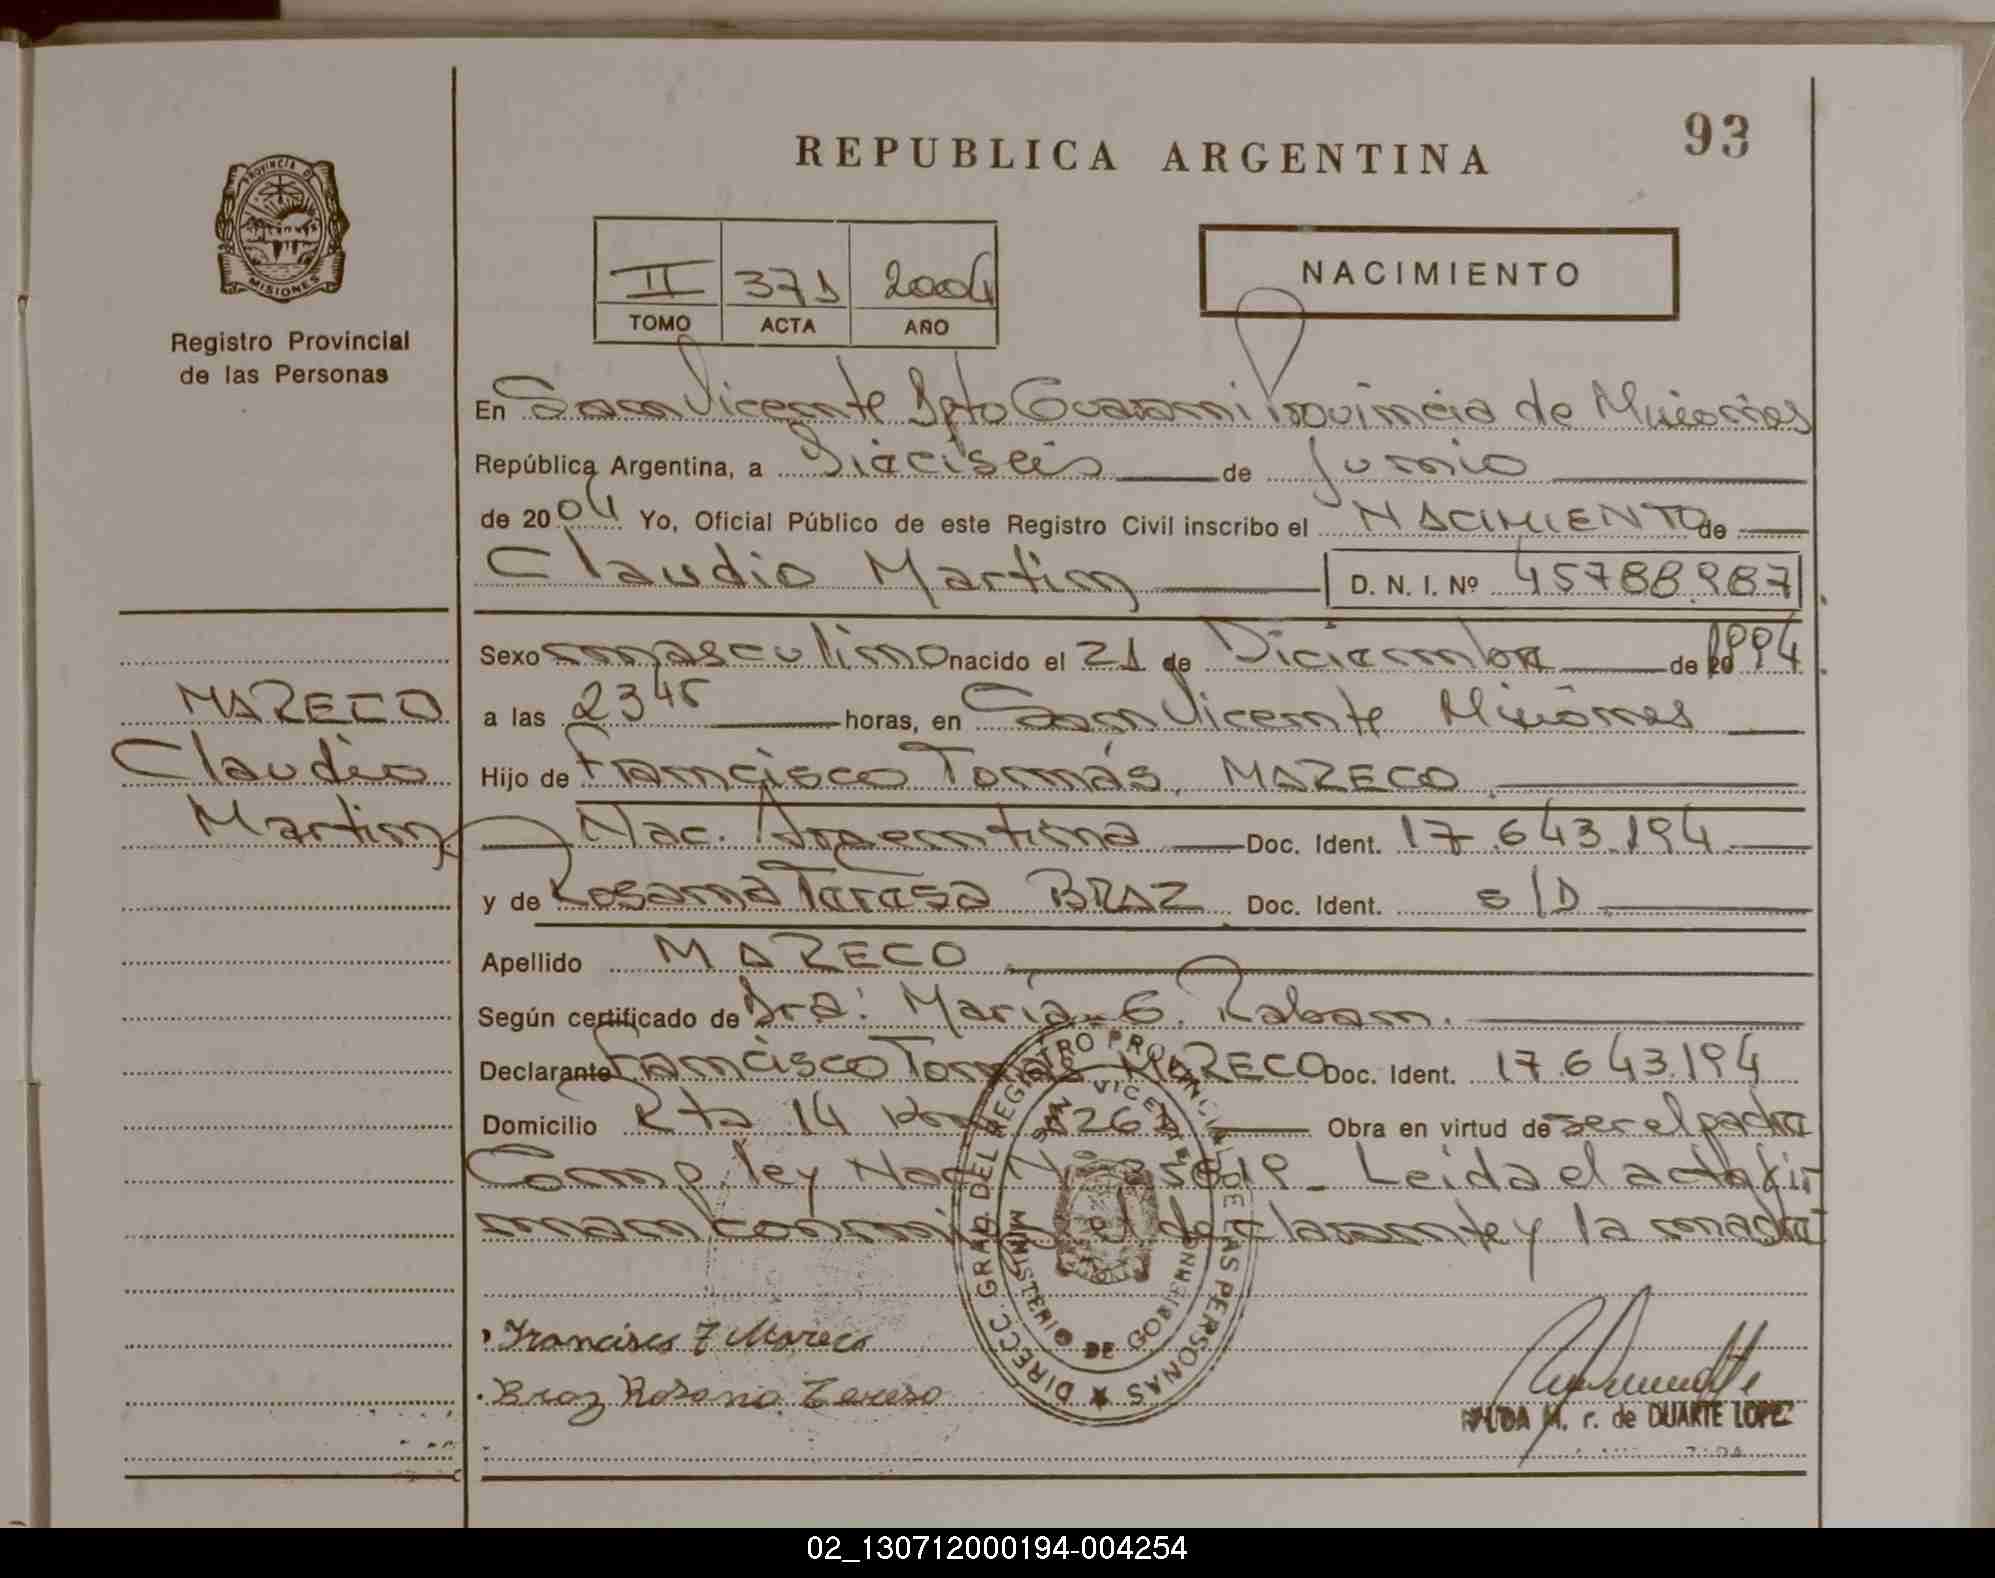 REPUBLICA ARGENTINA
93
PROVINCIA DE
MISIONES
Registro Provincial
de las Personas
II 371 2004
TOMO ACTA AÑO
NACIMIENTO
En San Vicente Dpto Guarani Provincia de Misiones
República Argentina, a Dieciseis de Junio
de 2004 Yo, Oficial Público de este Registro Civil inscribo el NACIMIENTO de
Claudio Martin D. N. I. Nº 45788.987
Sexo masculino nacido el 21 de Diciembre de 1994
MARECO
a las 2345 horas, en San Vicente Misiones
Claudio
Hijo de Francisco Tomás MARECO
Martin
Nac. Argentina Doc. Ident. 17.643.194
y de Rosana Teresa BRAZ Doc. Ident. s/D
Apellido MARECO
Según certificado de Dra: Maria G. Raban.
Declarante Francisco Tomás MARECO Doc. Ident. 17.643.194
Domicilio Rta 14 Km 1261 Obra en virtud de ser el padre
Comp. ley Nac Nº Leida el acta fir
man conmigo el declarante y la madre
DIRECC. GRAL. DEL REGISTRO PROVINCIAL DE LAS PERSONAS
SAN VICENTE
MINISTERIO DE GOBIERNO
Francisco T Mareco
Braz Rosana Teresa
M. r. de DUARTE LOPEZ
02_130712000194-004254